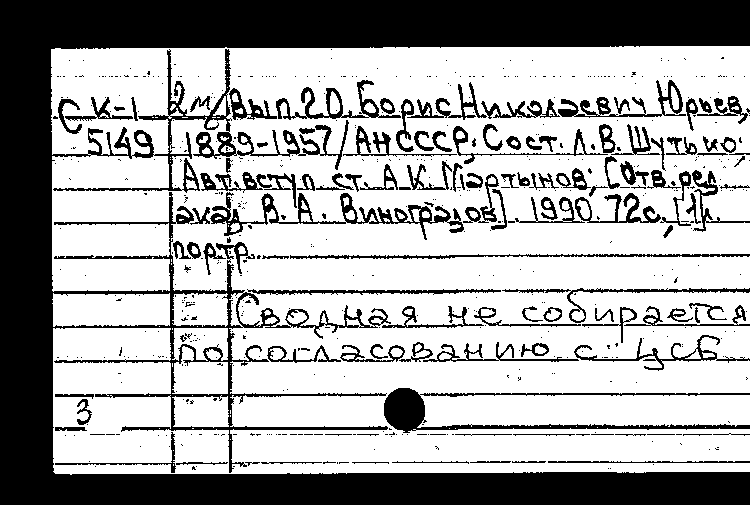 С К-1 2м/Вып.20. Борис Николаевич Юрьев,
5149 1889-1957/АН СССР; Сост. Л.В. Шутько;
Авт. вступ. ст. А.К. Мартынов; [Отв. ред.
акад. В. А. Виноградов]. 1990. 72с., [1]л.
портр.
Сводная не собирается
по согласованию с ЦСБ
3